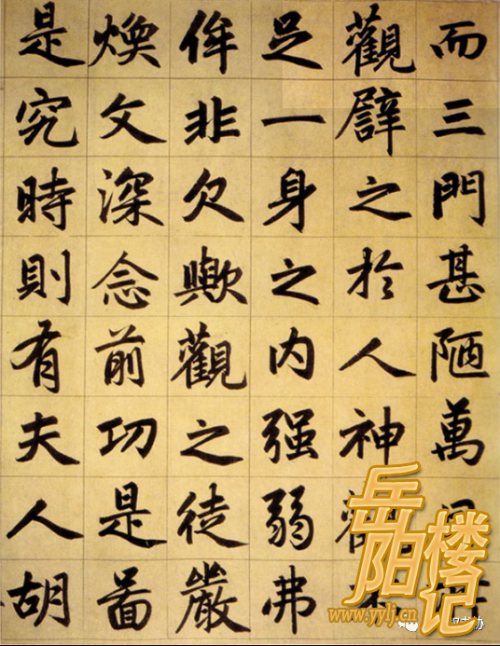 而三門甚陋萬
觀譬之於人神
足一身之内强弱弗
侔非欠歟觀之徒嚴
煥文深念前功是啚
是究時則有夫人胡
岳阳
楼记
www.yylj.cn